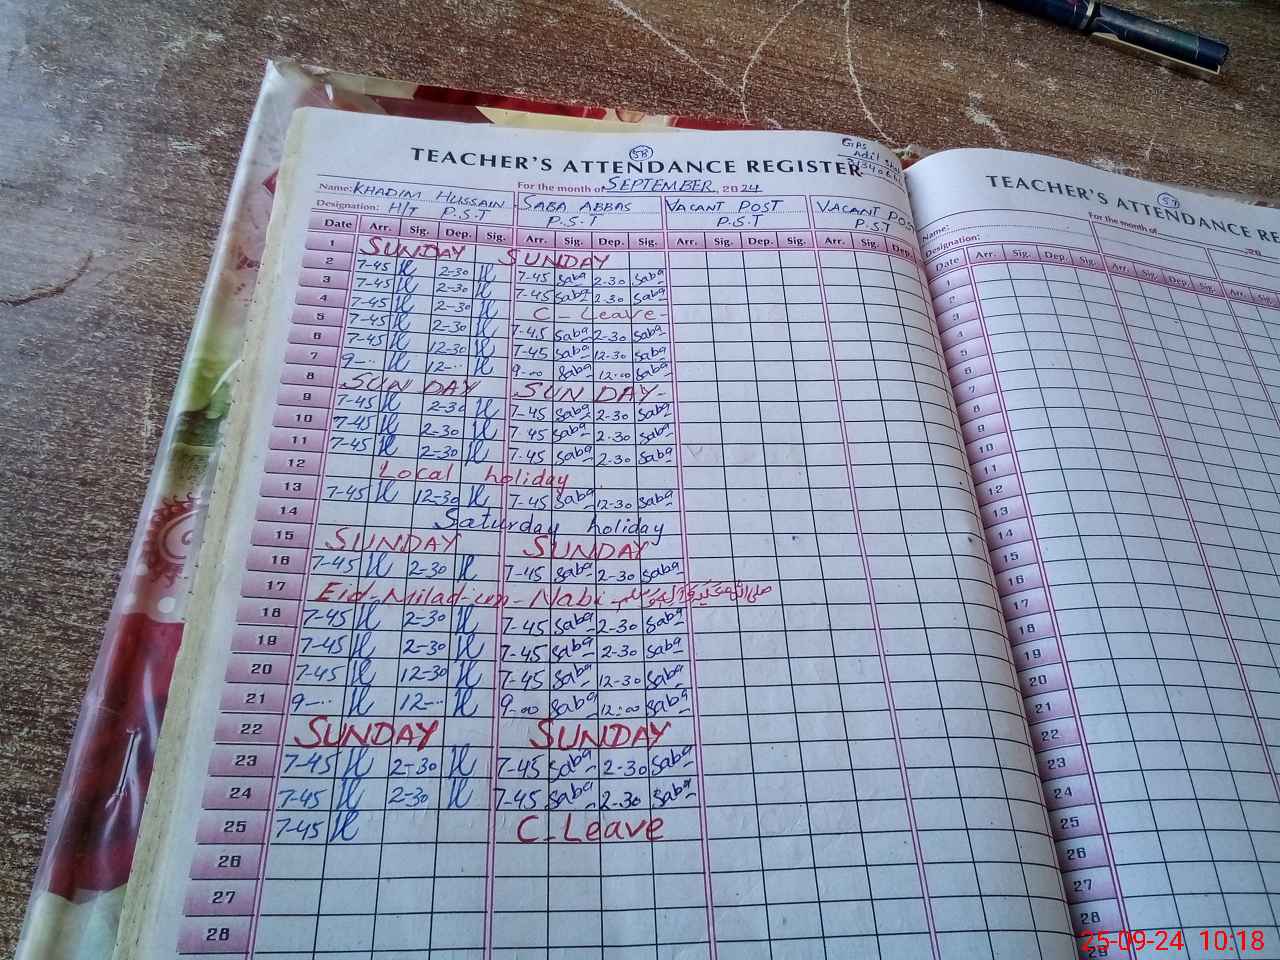 58
TEACHER'S ATTENDANCE REGISTER
GPS
Adil
Name: KHADIM HUSSAIN For the month of SEPTEMBER, 2024
Designation: H/T P.S.T SABA ABBAS P.S.T VACANT POST P.S.T VACANT POST P.S.T
Date Arr. Sig. Dep. Sig. Arr. Sig. Dep. Sig. Arr. Sig. Dep. Sig. Arr. Sig. Dep.
1 SUNDAY SUNDAY
2 7-45 2-30 7-45 Saba 2-30 Saba
3 7-45 2-30 7-45 Saba 2-30 Saba
4 7-45 2-30 C-Leave-
5 7-45 2-30 7-45 Saba 2-30 Saba
6 7-45 12-30 7-45 Saba 12-30 Saba
7 9-.. 12-.. 9-00 Saba 12:00 Saba
8 SUNDAY SUNDAY-
9 7-45 2-30 7-45 Saba 2-30 Saba
10 7-45 2-30 7-45 Saba 2-30 Saba
11 7-45 2-30 7-45 Saba 2-30 Saba
12 Local holiday
13 7-45 12-30 7-45 Saba 12-30 Saba
14 Saturday holiday
15 SUNDAY SUNDAY
16 7-45 2-30 7-45 Saba 2-30 Saba
17 Eid-Milad-un-Nabi-
18 7-45 2-30 7-45 Saba 2-30 Saba
19 7-45 2-30 7-45 Saba 2-30 Saba
20 7-45 12-30 7-45 Saba 12-30 Saba
21 9-.. 12-.. 9-00 Saba 12:00 Saba
22 SUNDAY SUNDAY
23 7-45 2-30 7-45 Saba 2-30 Saba
24 7-45 2-30 7-45 Saba 2-30 Saba
25 7-45 C-Leave
26
27
28
57
TEACHER'S ATTENDANCE RE
Name: For the month of 20
Designation:
Date Arr. Sig. Dep. Sig. Arr. Sig.
1
2
3
4
5
6
7
8
9
10
11
12
13
14
15
16
17
18
19
20
21
22
23
24
25
26
27
28
29
25-09-24 10:18